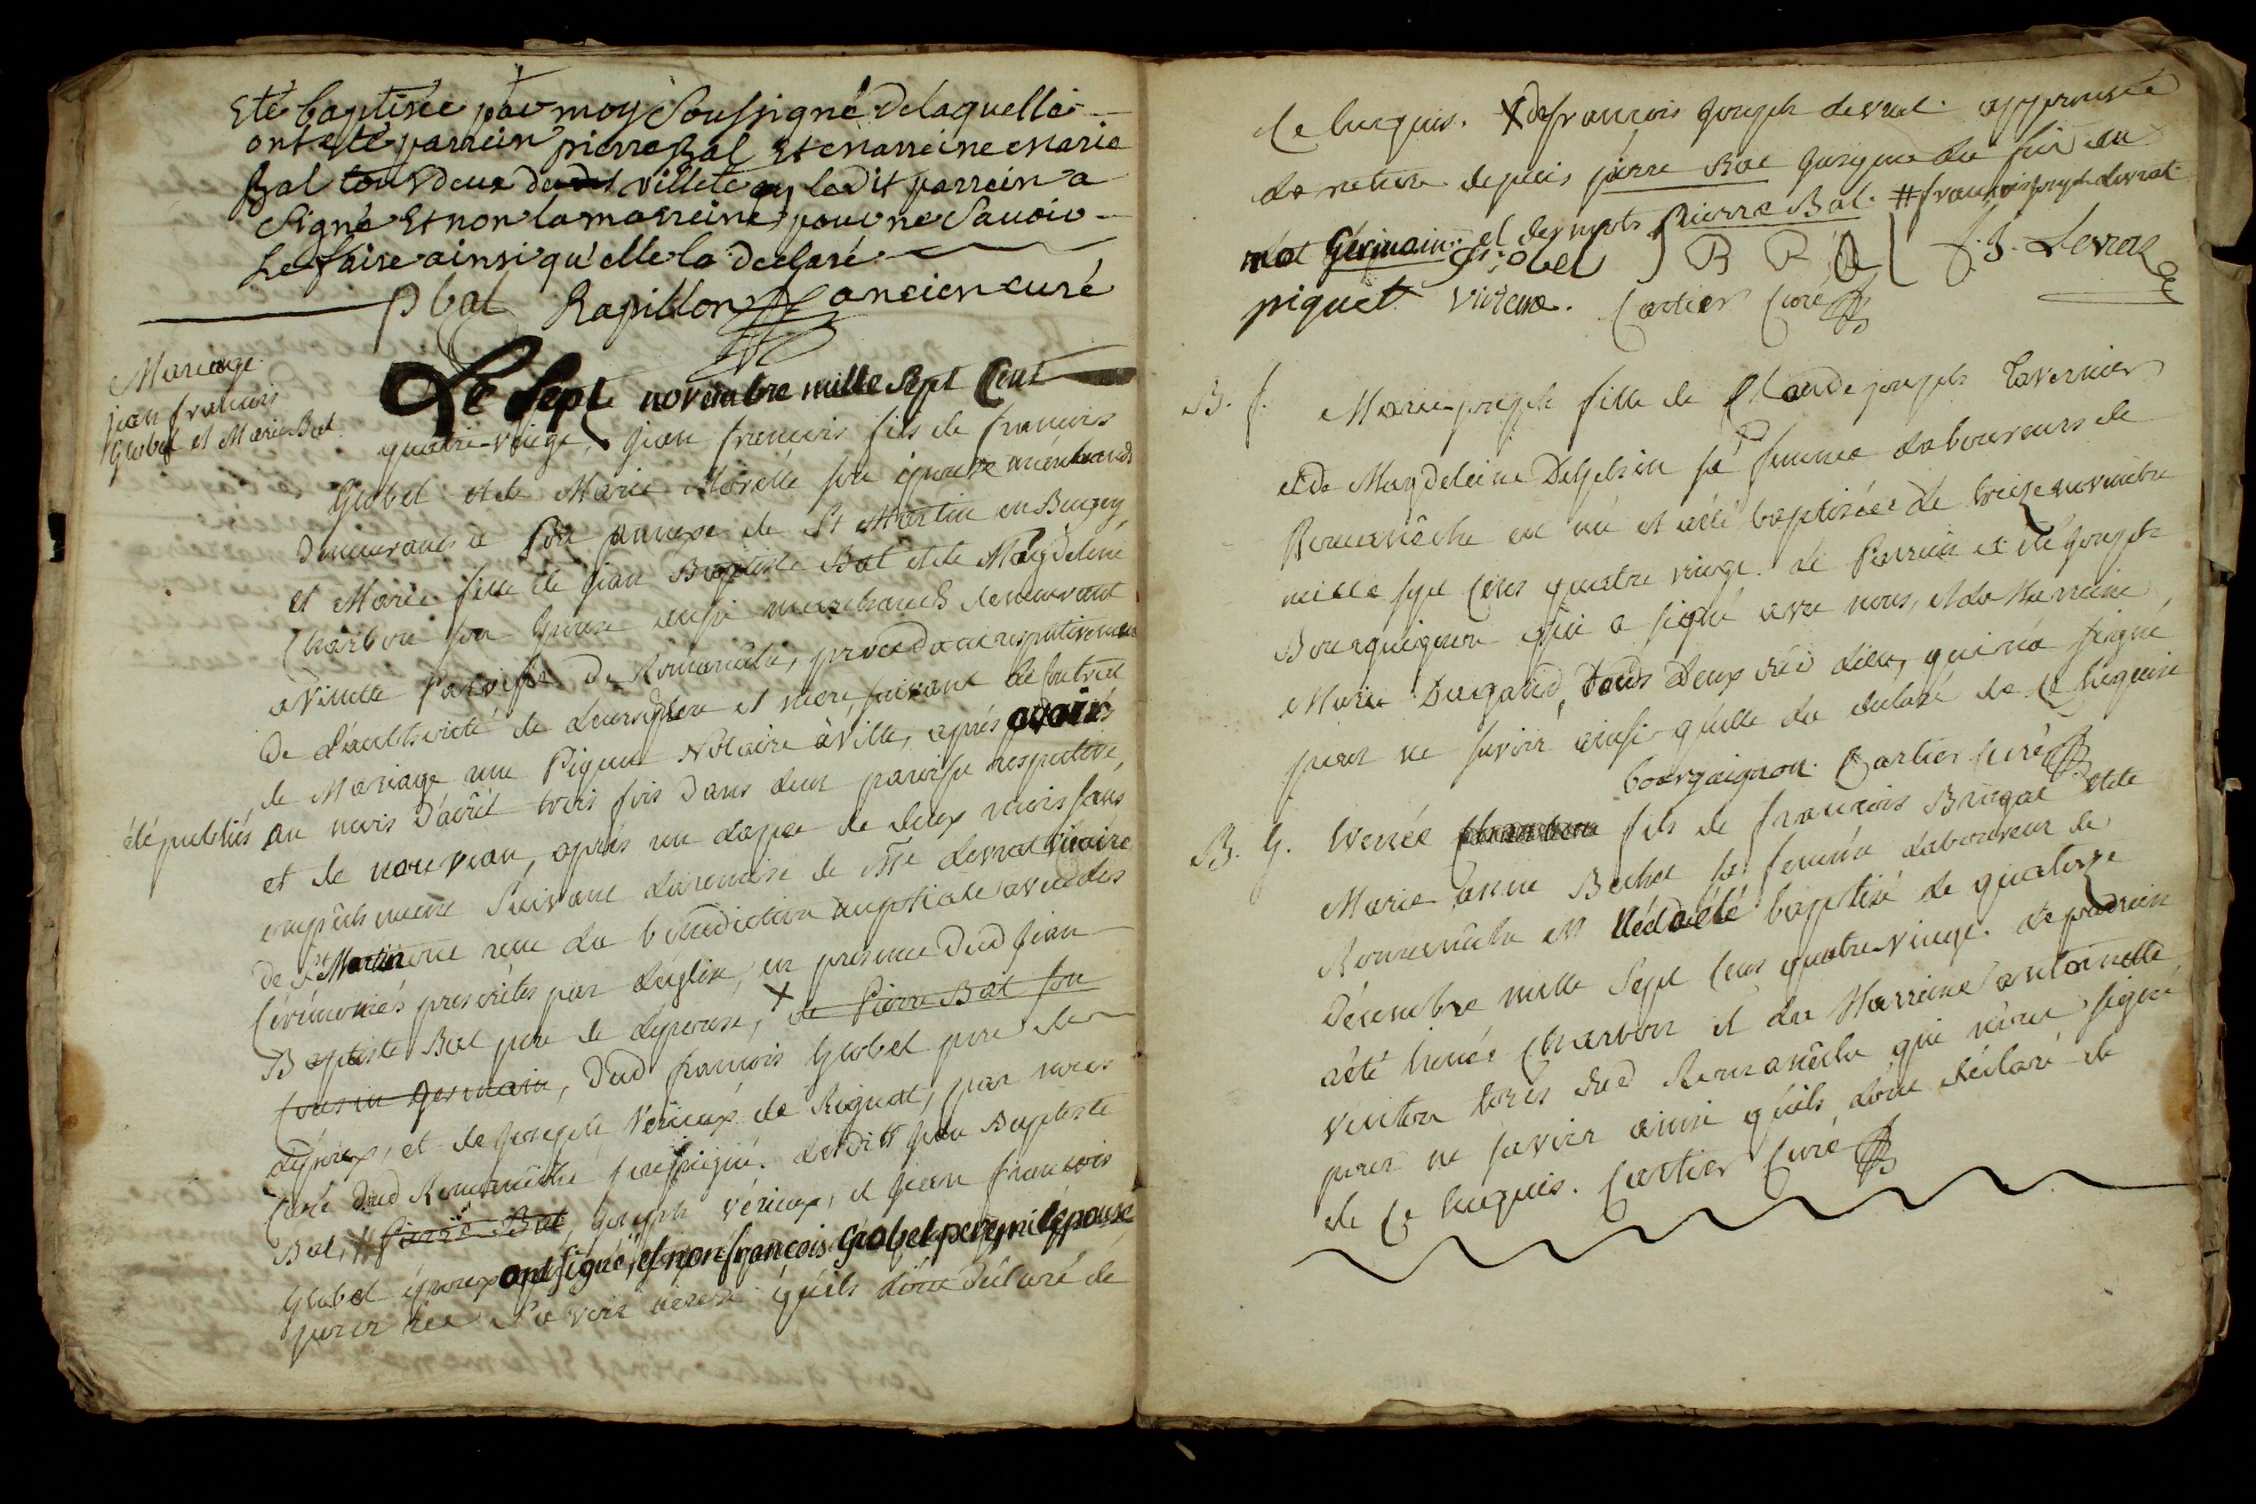 Eté baptisée par moy Soussigné delaquelle
ont eté parrein pierre Bal Et marreine marie
Bal tous deux dudit villete ledit parrein a
Signé Et non la marreine pour ne Savoir
Le faire ainsi qu'elle la declaré
P bal Rapillon ancien curé
Mariage
jean francois
Grobel et Marie Bal
Le Sept novembre mille Sept Cent
quatre-vingt, Jean francois fils de francois
Grobel et de Marie Morelle son épouse marchands
demeurants a annexe de St Martin en Bugey,
et Marie fille de Jean Baptiste Bal et de Magdeleine
Charbon son épouse aussi marchands demeurant
a Villette Paroisse de Romanêche, procedant respectivement
de l'authorité de leurs père et mere, suivant le Contrat
de Mariage reçu Piquet Notaire à Ville, aprés avoir
été publiés au mois d'avril trois fois dans leur paroisse respective,
et de nouveau, aprés un lapse de deux mois sans
empêchement Suivant la remise de Mre devrat vicaire
de St Martin ont reçu la bénédiction nuptiale avec les
Cérémonies prescrites par l'église, en presence dud Jean
Baptiste Bal pere de l'épouse, X de Pierre Bal son
Cousin germain, dud francois Grobel pere de
l'époux, et de Joseph Vérieux de Rignat, par nous
Curé dud Romanêche soussigné. lesdits Jean Baptiste
Bal, # Pierre Bal, Joseph Vérieux, et Jean francois
Grobel époux ont signé, et non francois Grobel pere, ni l'épouse
pour ne Savoir qu'ils l'ont déclaré de
Ce Enquis. X de francois Joseph devrat. approuvée
la rature depuis pierre Bal jusques la fin du
mot Germain: et des mots Pierre Bal. # francois joseph devrat.
Grobel J B B A L f. J. Devrat
piquet Virieux. Cartier Curé
B. f. Marie-joseph fille de Claude joseph Tavernier
et de Magdeleine Delphin sa femme Laboureurs de
Romanêche est née et a été baptisée le treize novembre
mille sept Cens quatre vingt. Le Parrein a été Joseph
Bourguignon qui a signé avec nous, et la Marreine
Marie Dugarid, tous deux dud lieu, qui n'a signé
pour ne Savoir ainsi qu'elle la déclaré de Ce Enquise
bourguignon. Cartier Curé
B. G. Venée fils de francois Brugat et de
Marie anne Bechet sa femme Laboureur de
Romanêche est Né et a été baptisé le quatorze
Décembre mille Sept Cens quatre-vingt. Le parrein
a été Venée Charbon et la Marreine antoinette
Venton tous dud Romanêche qui n'ont signé
pour ne Savoir ainsi qu'ils l'ont déclaré de
de Ce Enquis. Cartier Curé